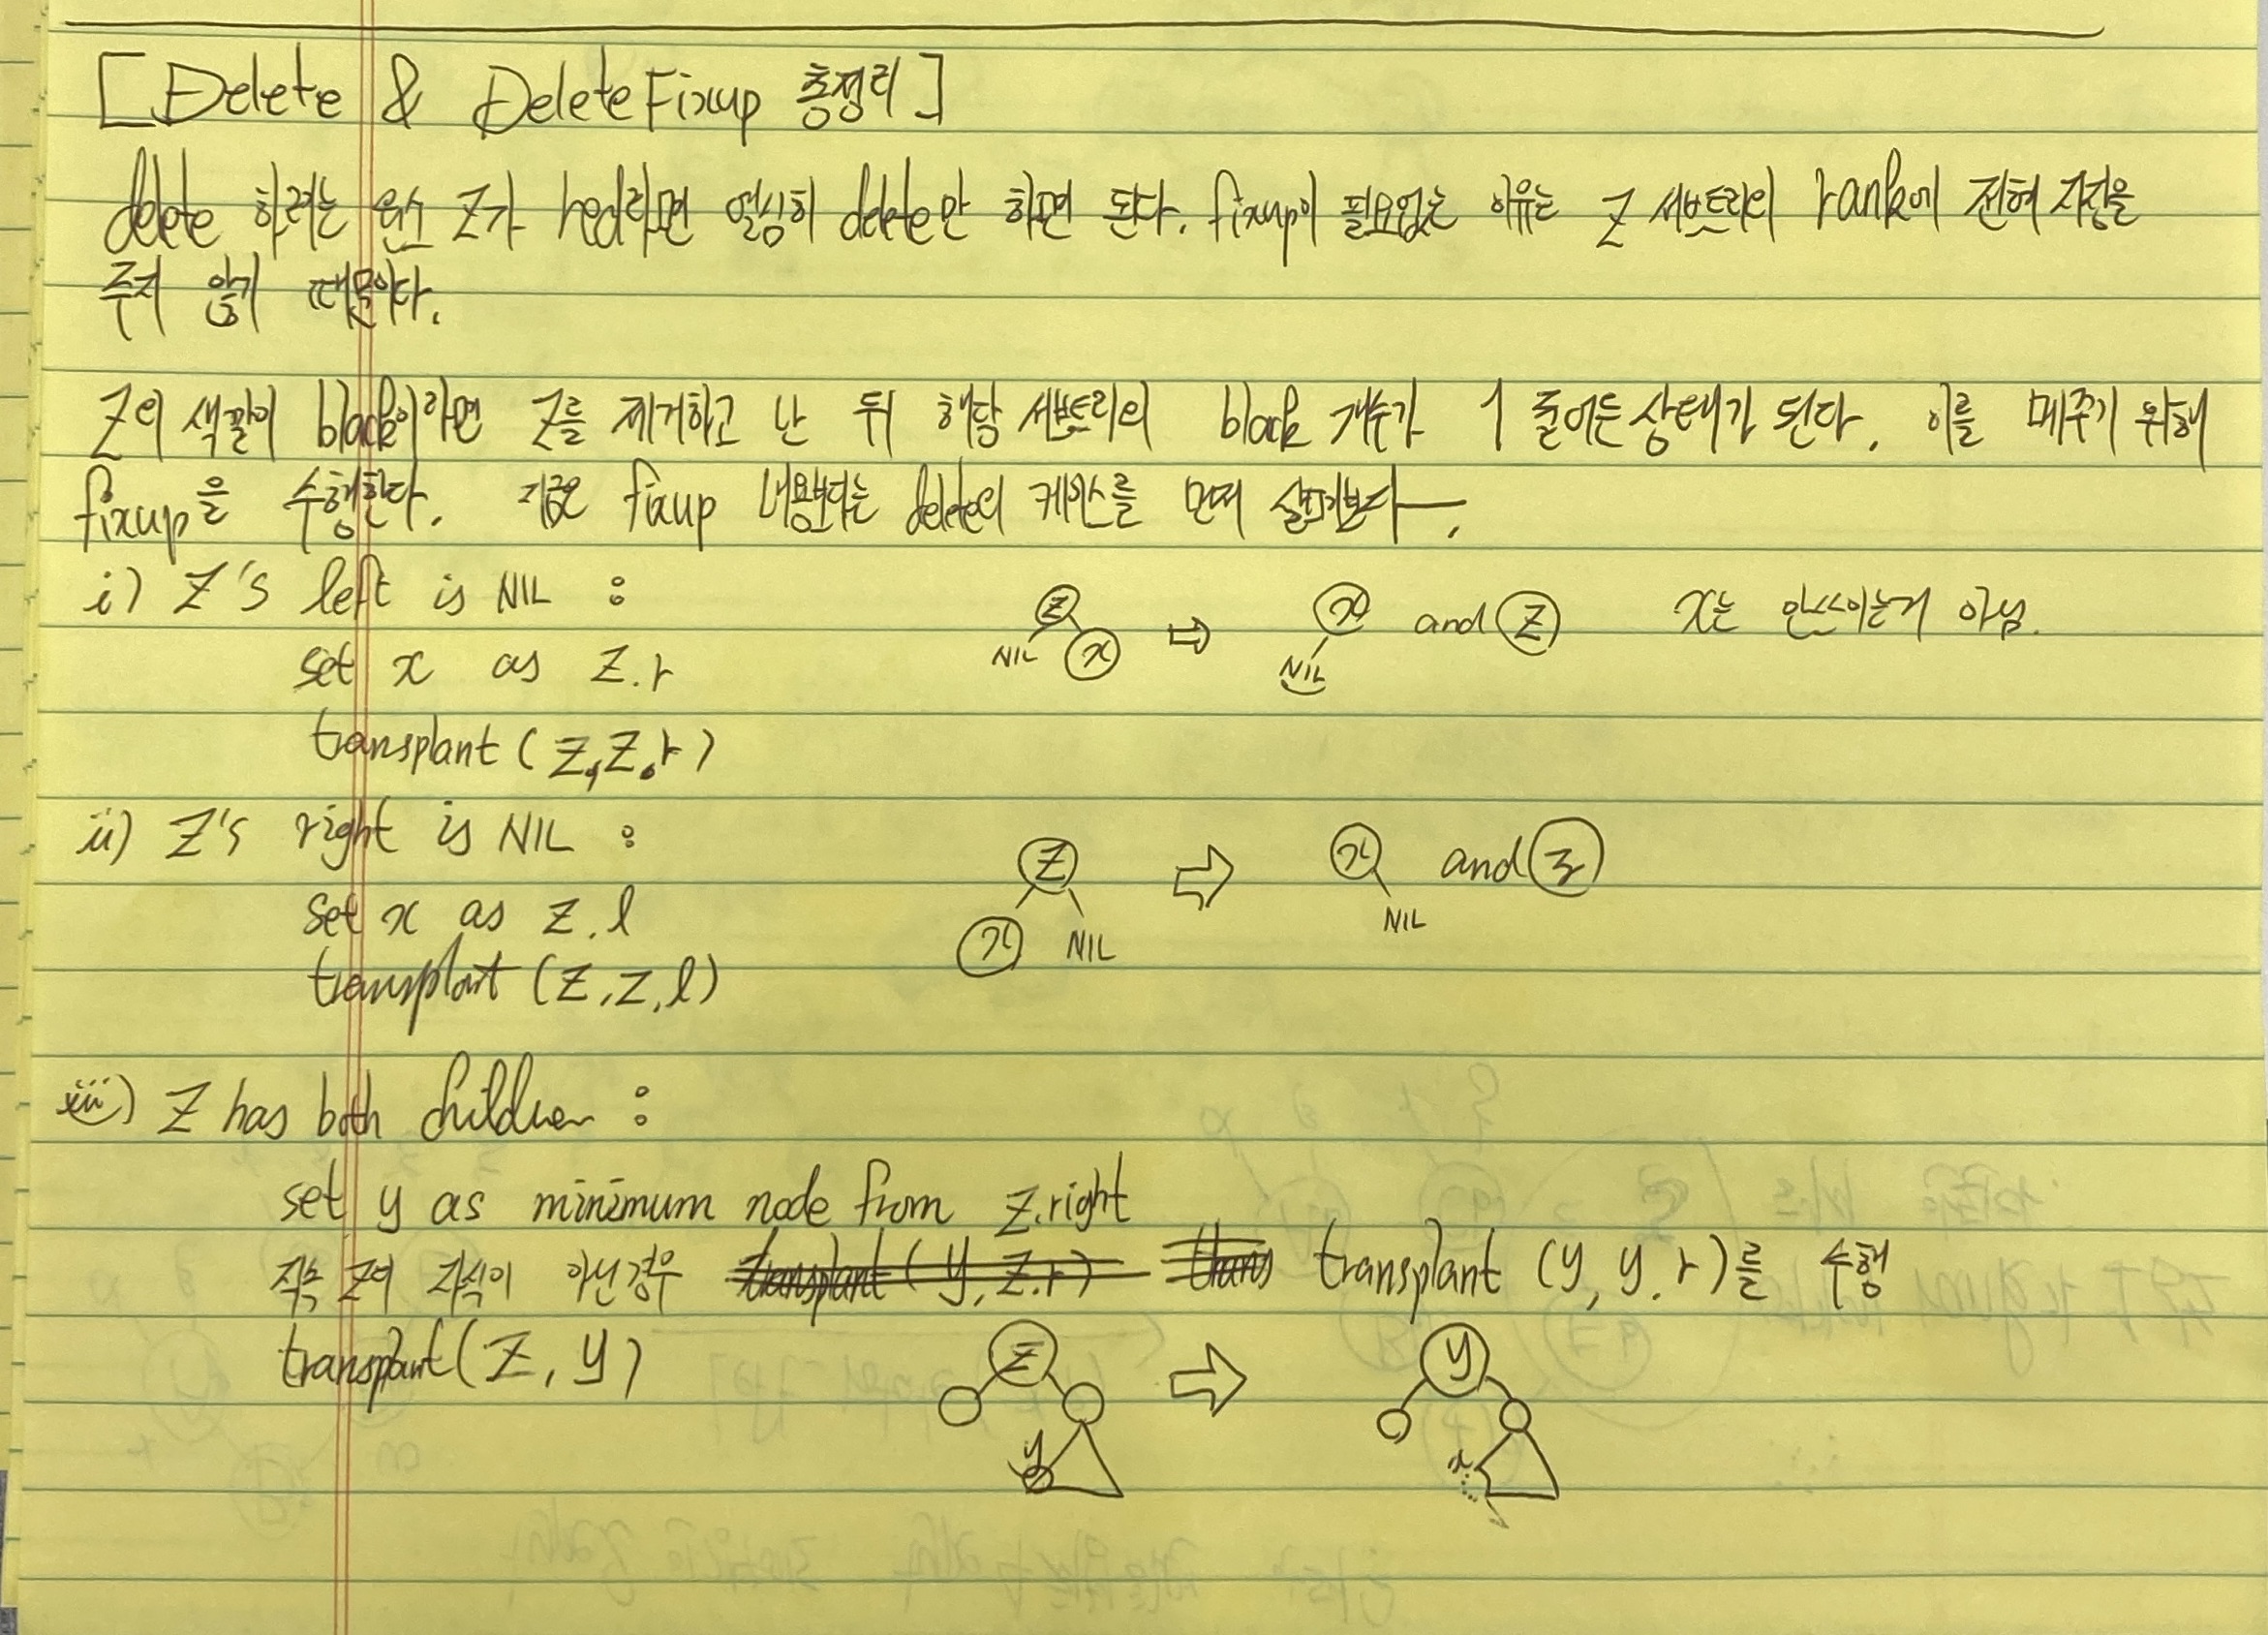 [Delete & DeleteFixup 총정리]
delete 하려는 원소 Z가 red라면 열심히 delete만 하면 된다. fixup이 필요없는 이유는 Z 서브트리의 rank에 전혀 지장을
주지 않기 때문이다.
Z의 색깔이 black이라면 Z를 제거하고 난 뒤 해당 서브트리의 black 개수가 1 줄어든 상태가 된다. 이를 메꾸기 위해
fixup을 수행한다. 지금은 fixup 내용보다는 delete의 케이스를 먼저 살펴보자.
i) Z's left is NIL :
Z NIL x ⇒ x NIL and Z x는 안쓰이는게 아님.
set x as Z.r
transplant (Z, Z.r)
ii) Z's right is NIL :
Z x NIL ⇒ x NIL and Z
set x as Z.l
transplant (Z, Z.l)
iii) Z has both children :
set y as minimum node from Z.right
직속 Z의 자식이 아닌경우 transplant (y, Z.r) trans transplant (y, y.r)를 수행
transplant (Z, y)
Z y ⇒ y x